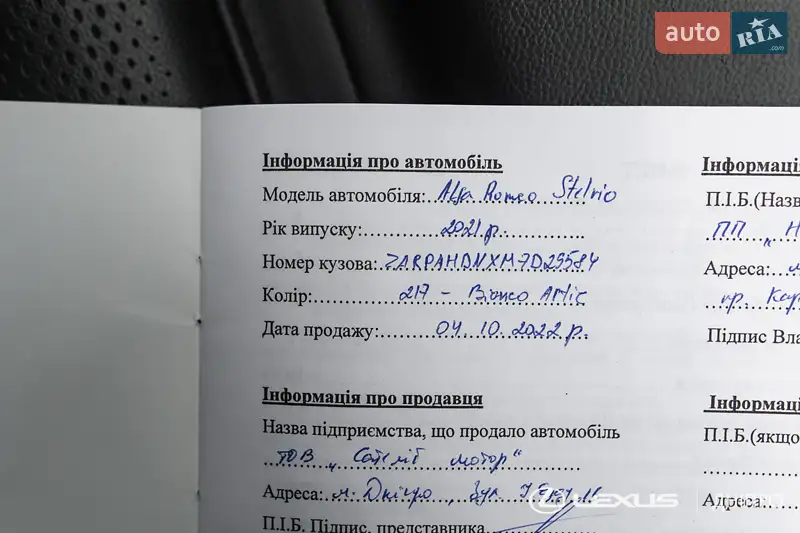 auto RIA .com
Інформація про автомобіль
Модель автомобіля: Alfa Romeo Stelvio
Рік випуску: 2021 р.
Номер кузова: ZARPAHDNXM7D29584
Колір: 217 - Bianco Alfa
Дата продажу: 04.10.2022 р.
Інформація про продавця
Назва підприємства, що продало автомобіль
ТОВ „Сателіт мотор“
Адреса: м. Дніпро, вул.
П.І.Б. Підпис. представника
Інформаці
П.І.Б.(Назв
ПП „Н
Адреса: м
пр. Кар
Підпис Вла
Інформаці
П.І.Б.(якщо
Адреса:
LEXUS